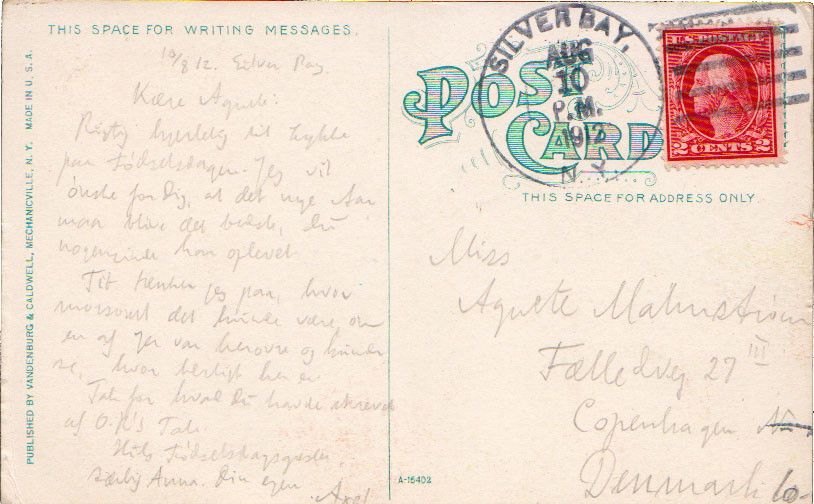 THIS SPACE FOR WRITING MESSAGES.
10/8 12. Silver Bay
Kære Agnete
Rigtig hjertelig til Lykke
paa Fødselsdagen. Jeg vil
ønske for Dig, at det nye Aar
maa blive det bedste, Du
nogensinde har oplevet.
Tit tænker jeg paa, hvor
morsomt det kunde være, om
en af Jer var herovre og kunde
se, hvor dejligt her er.
Tak for hvad Du havde skrevet
af O.H.'s Tale.
Hils Fødselsdagsgæster,
særlig Anna. Din egen
Axel
PUBLISHED BY VANDENBURG & CALDWELL, MECHANICVILLE, N. Y. MADE IN U. S. A.
POST CARD
SILVER BAY,
AUG
10
P.M.
1912
N.Y.
U.S. POSTAGE
2 CENTS 2
THIS SPACE FOR ADDRESS ONLY.
Miss
Agnete Malmstrøm
Fælledvej 27 III
Copenhagen N
Denmark
A-15402